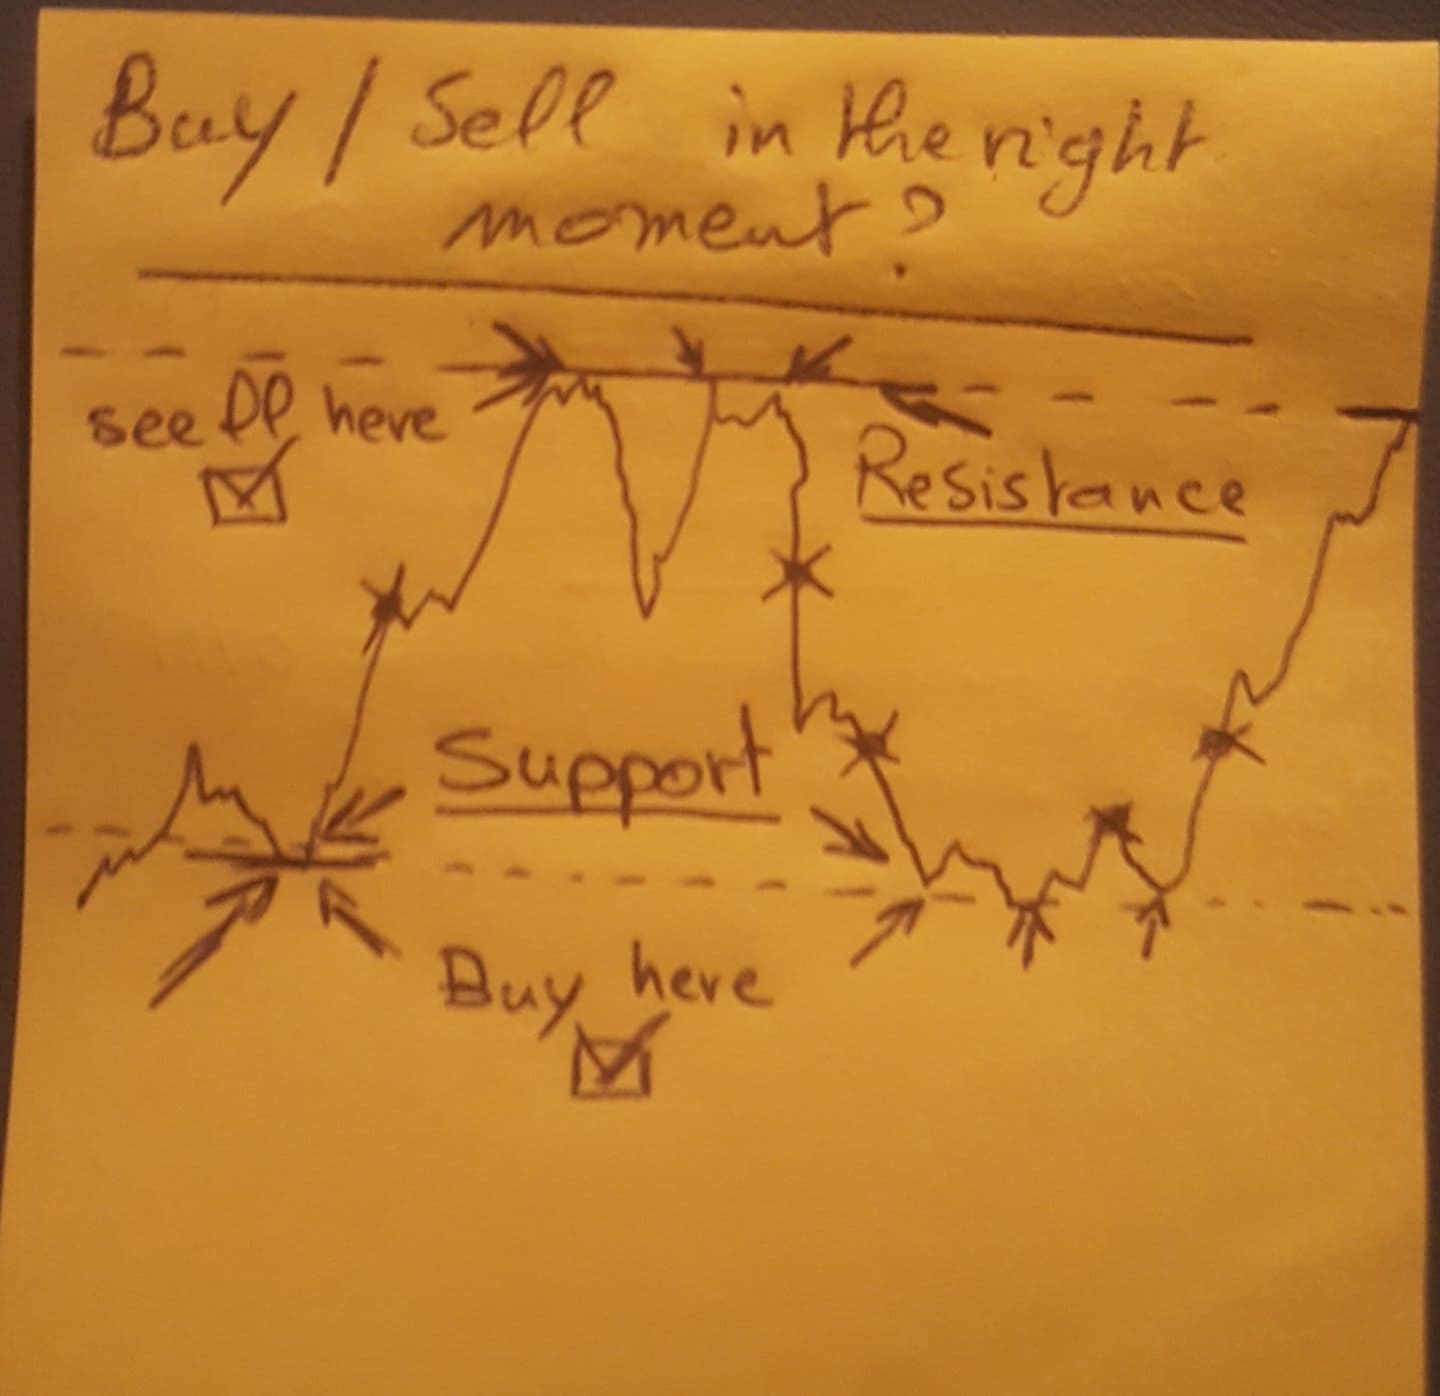 Buy / Sell in the right
moment?
see DP here
Resistance
Support
Buy here